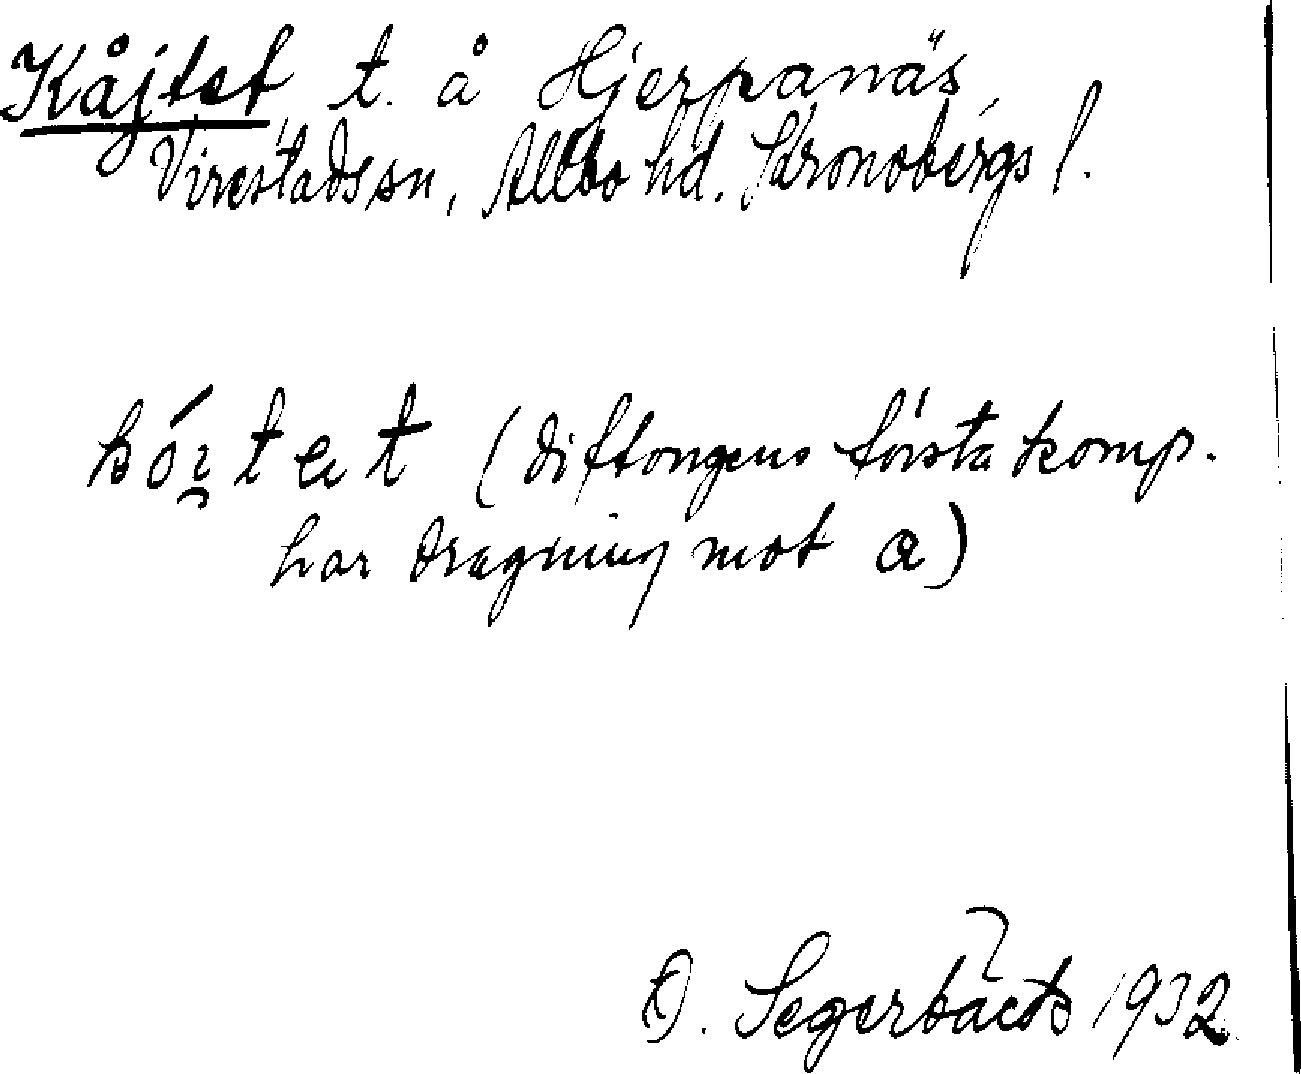 Kåjtet t. å Hjerpanäs,
Virestads sn, Allbo hd. Kronobergs l.
kói̯tet (diftongens första komp.
har dragning mot a)
O. Segerbäck 1932